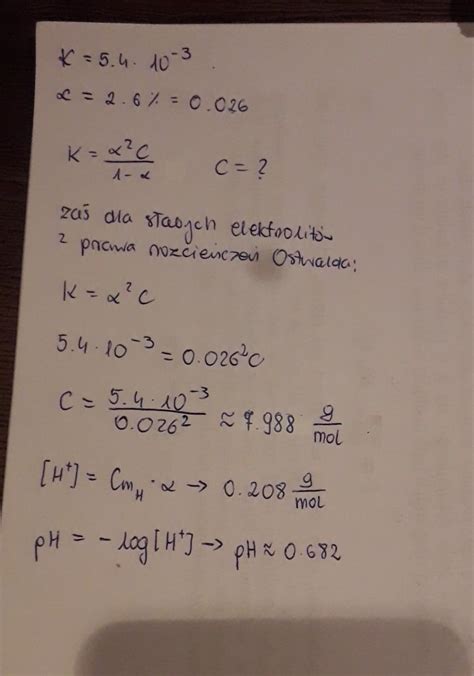 K = 5.4 · 10⁻³ .
α = 2.6 % = 0.026
K = α²C / 1-α    C = ?
zaś dla słabych elektrolitów
z prawa rozcieńczeń Ostwalda:
K = α²C
5.4 · 10⁻³ = 0.026²C
C = 5.4 · 10⁻³ / 0.026² ≈ 7.988 g/mol
[H⁺] = Cm_H · α → 0.208 g/mol
pH = - log [H⁺] → pH ≈ 0.682